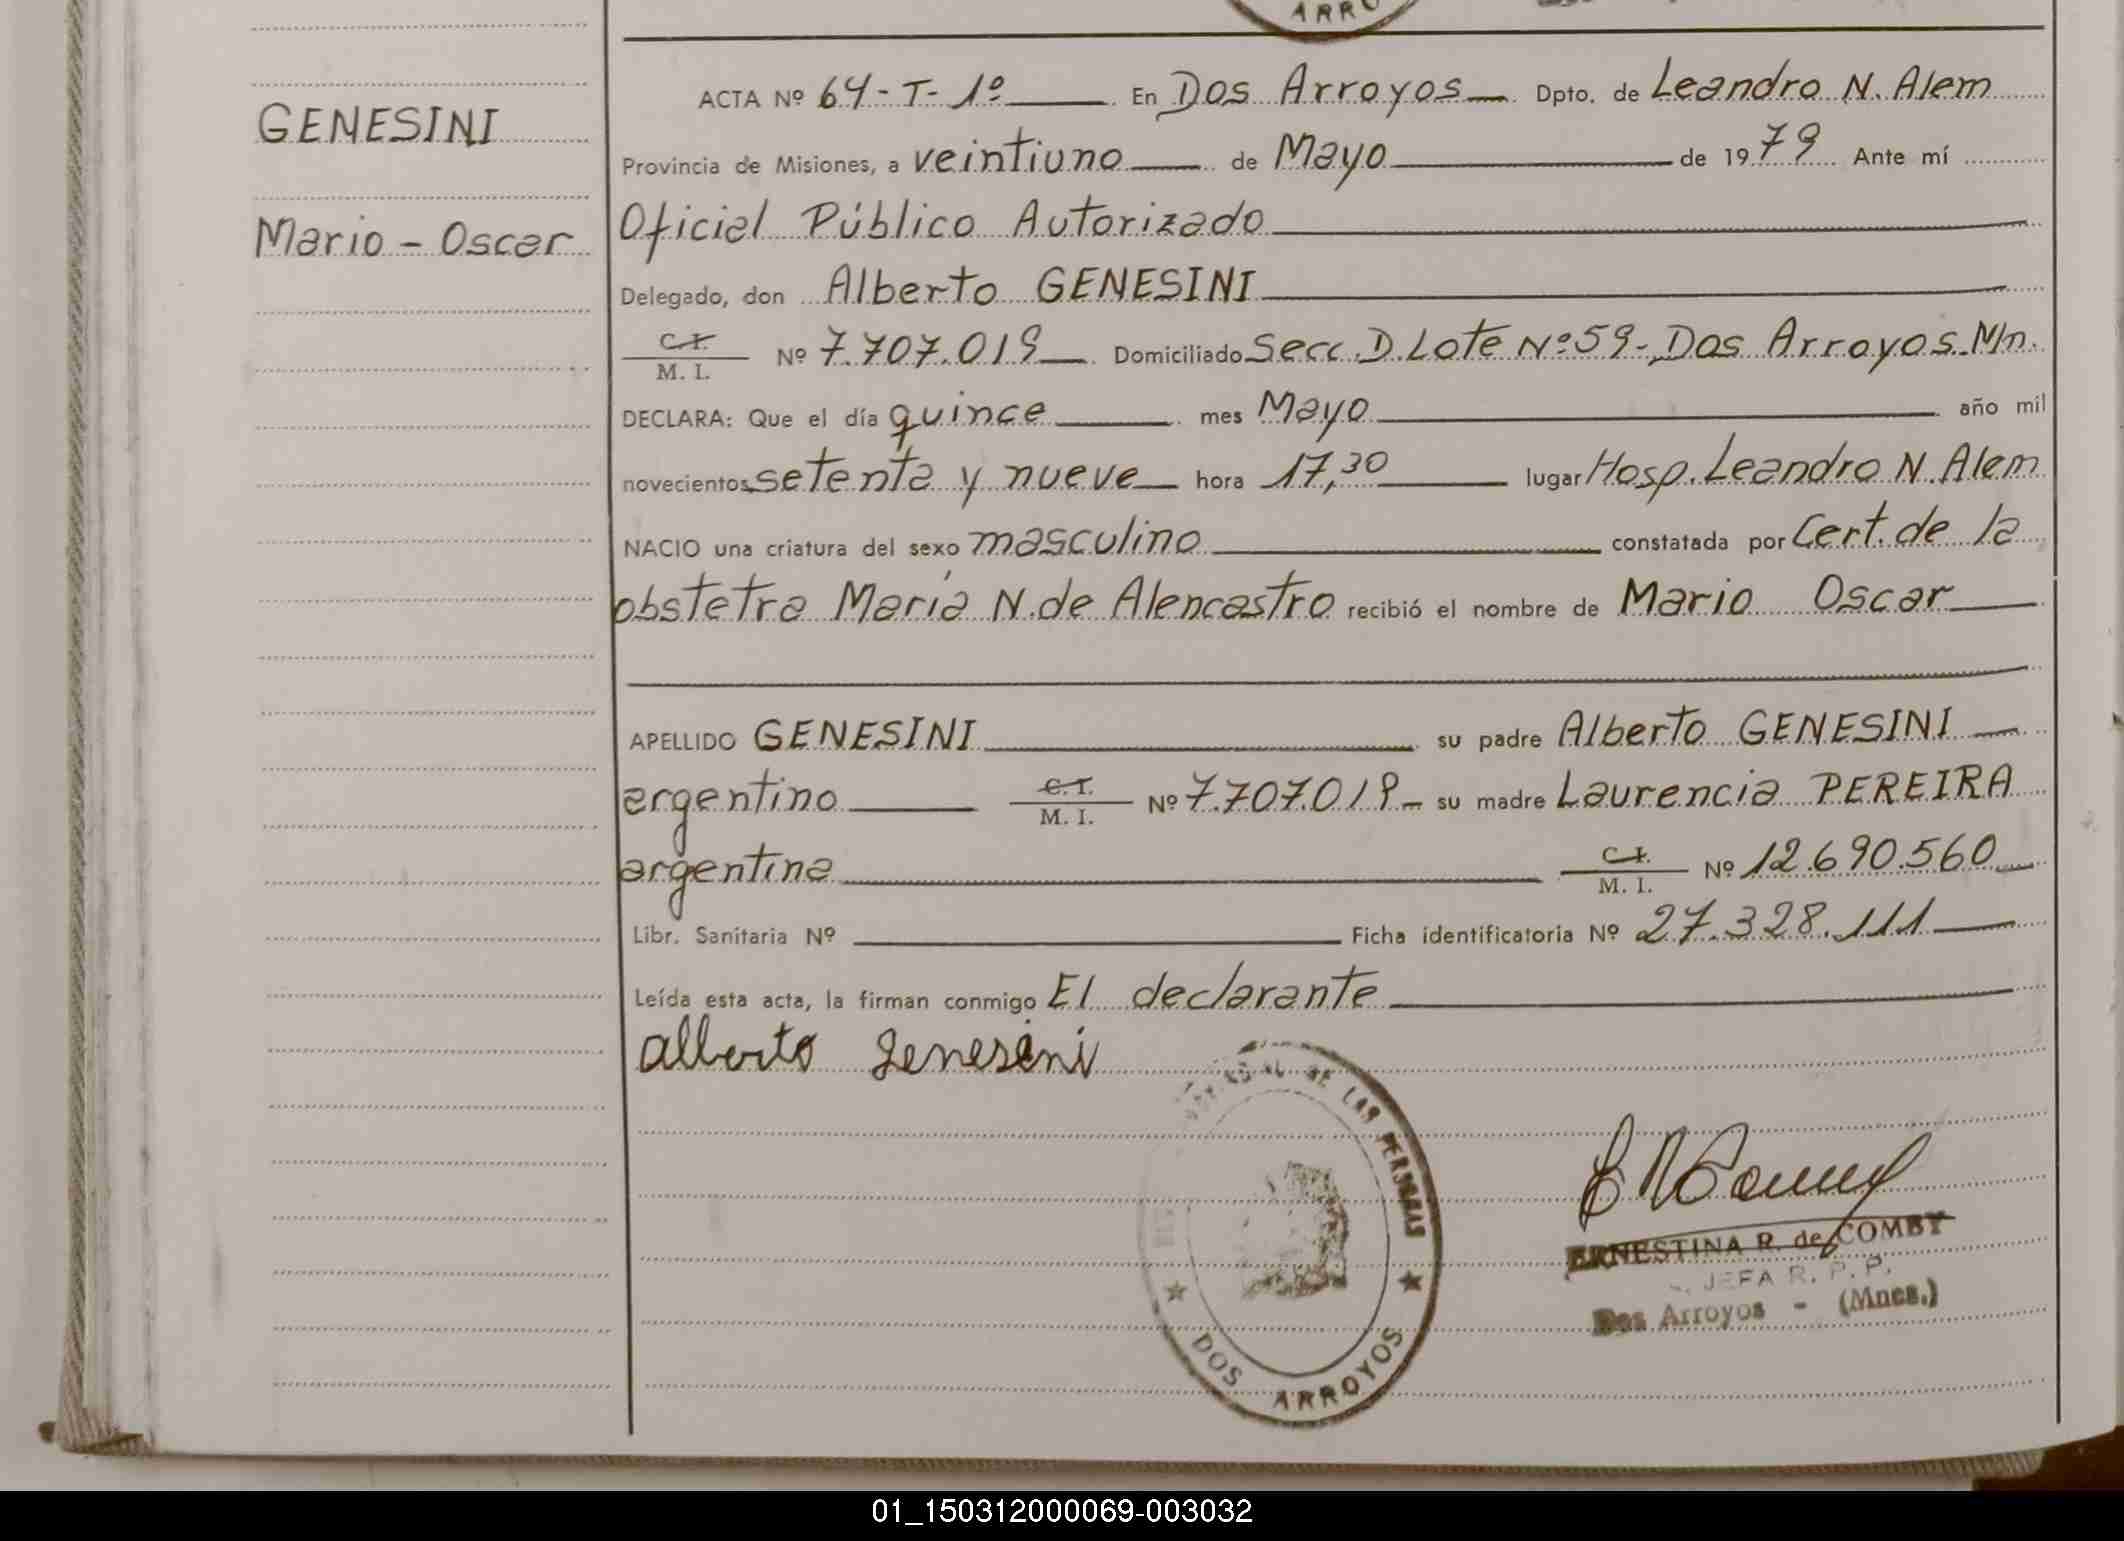 ARRO
GENESINI
Mario - Oscar
ACTA Nº 64-T-1º En Dos Arroyos Dpto. de Leandro N. Alem
Provincia de Misiones, a veintiuno de Mayo de 1979 Ante mí
Oficial Público Autorizado
Delegado, don Alberto GENESINI
C.I.
M. I. Nº 7.707.019 Domiciliado Secc. D. Lote Nº 59- Dos Arroyos. Mn.
DECLARA: Que el día quince mes Mayo año mil
novecientos setenta y nueve hora 17,30 lugar Hosp. Leandro N. Alem
NACIO una criatura del sexo masculino constatada por Cert. de la
obstetra María N. de Alencastro recibió el nombre de Mario Oscar
APELLIDO GENESINI su padre Alberto GENESINI
argentino C.I. M. I. Nº 7.707.019 su madre Laurencia PEREIRA
argentina C.I. M. I. Nº 12.690.560
Libr. Sanitaria Nº Ficha identificatoria Nº 27.328.111
Leída esta acta, la firman conmigo El declarante
alberto genesini
DE LAS PERSONAS
DOS ARROYOS
ERNESTINA R. de COMBY
JEFA R. P. P.
Dos Arroyos - (Mnes.)
01_150312000069-003032